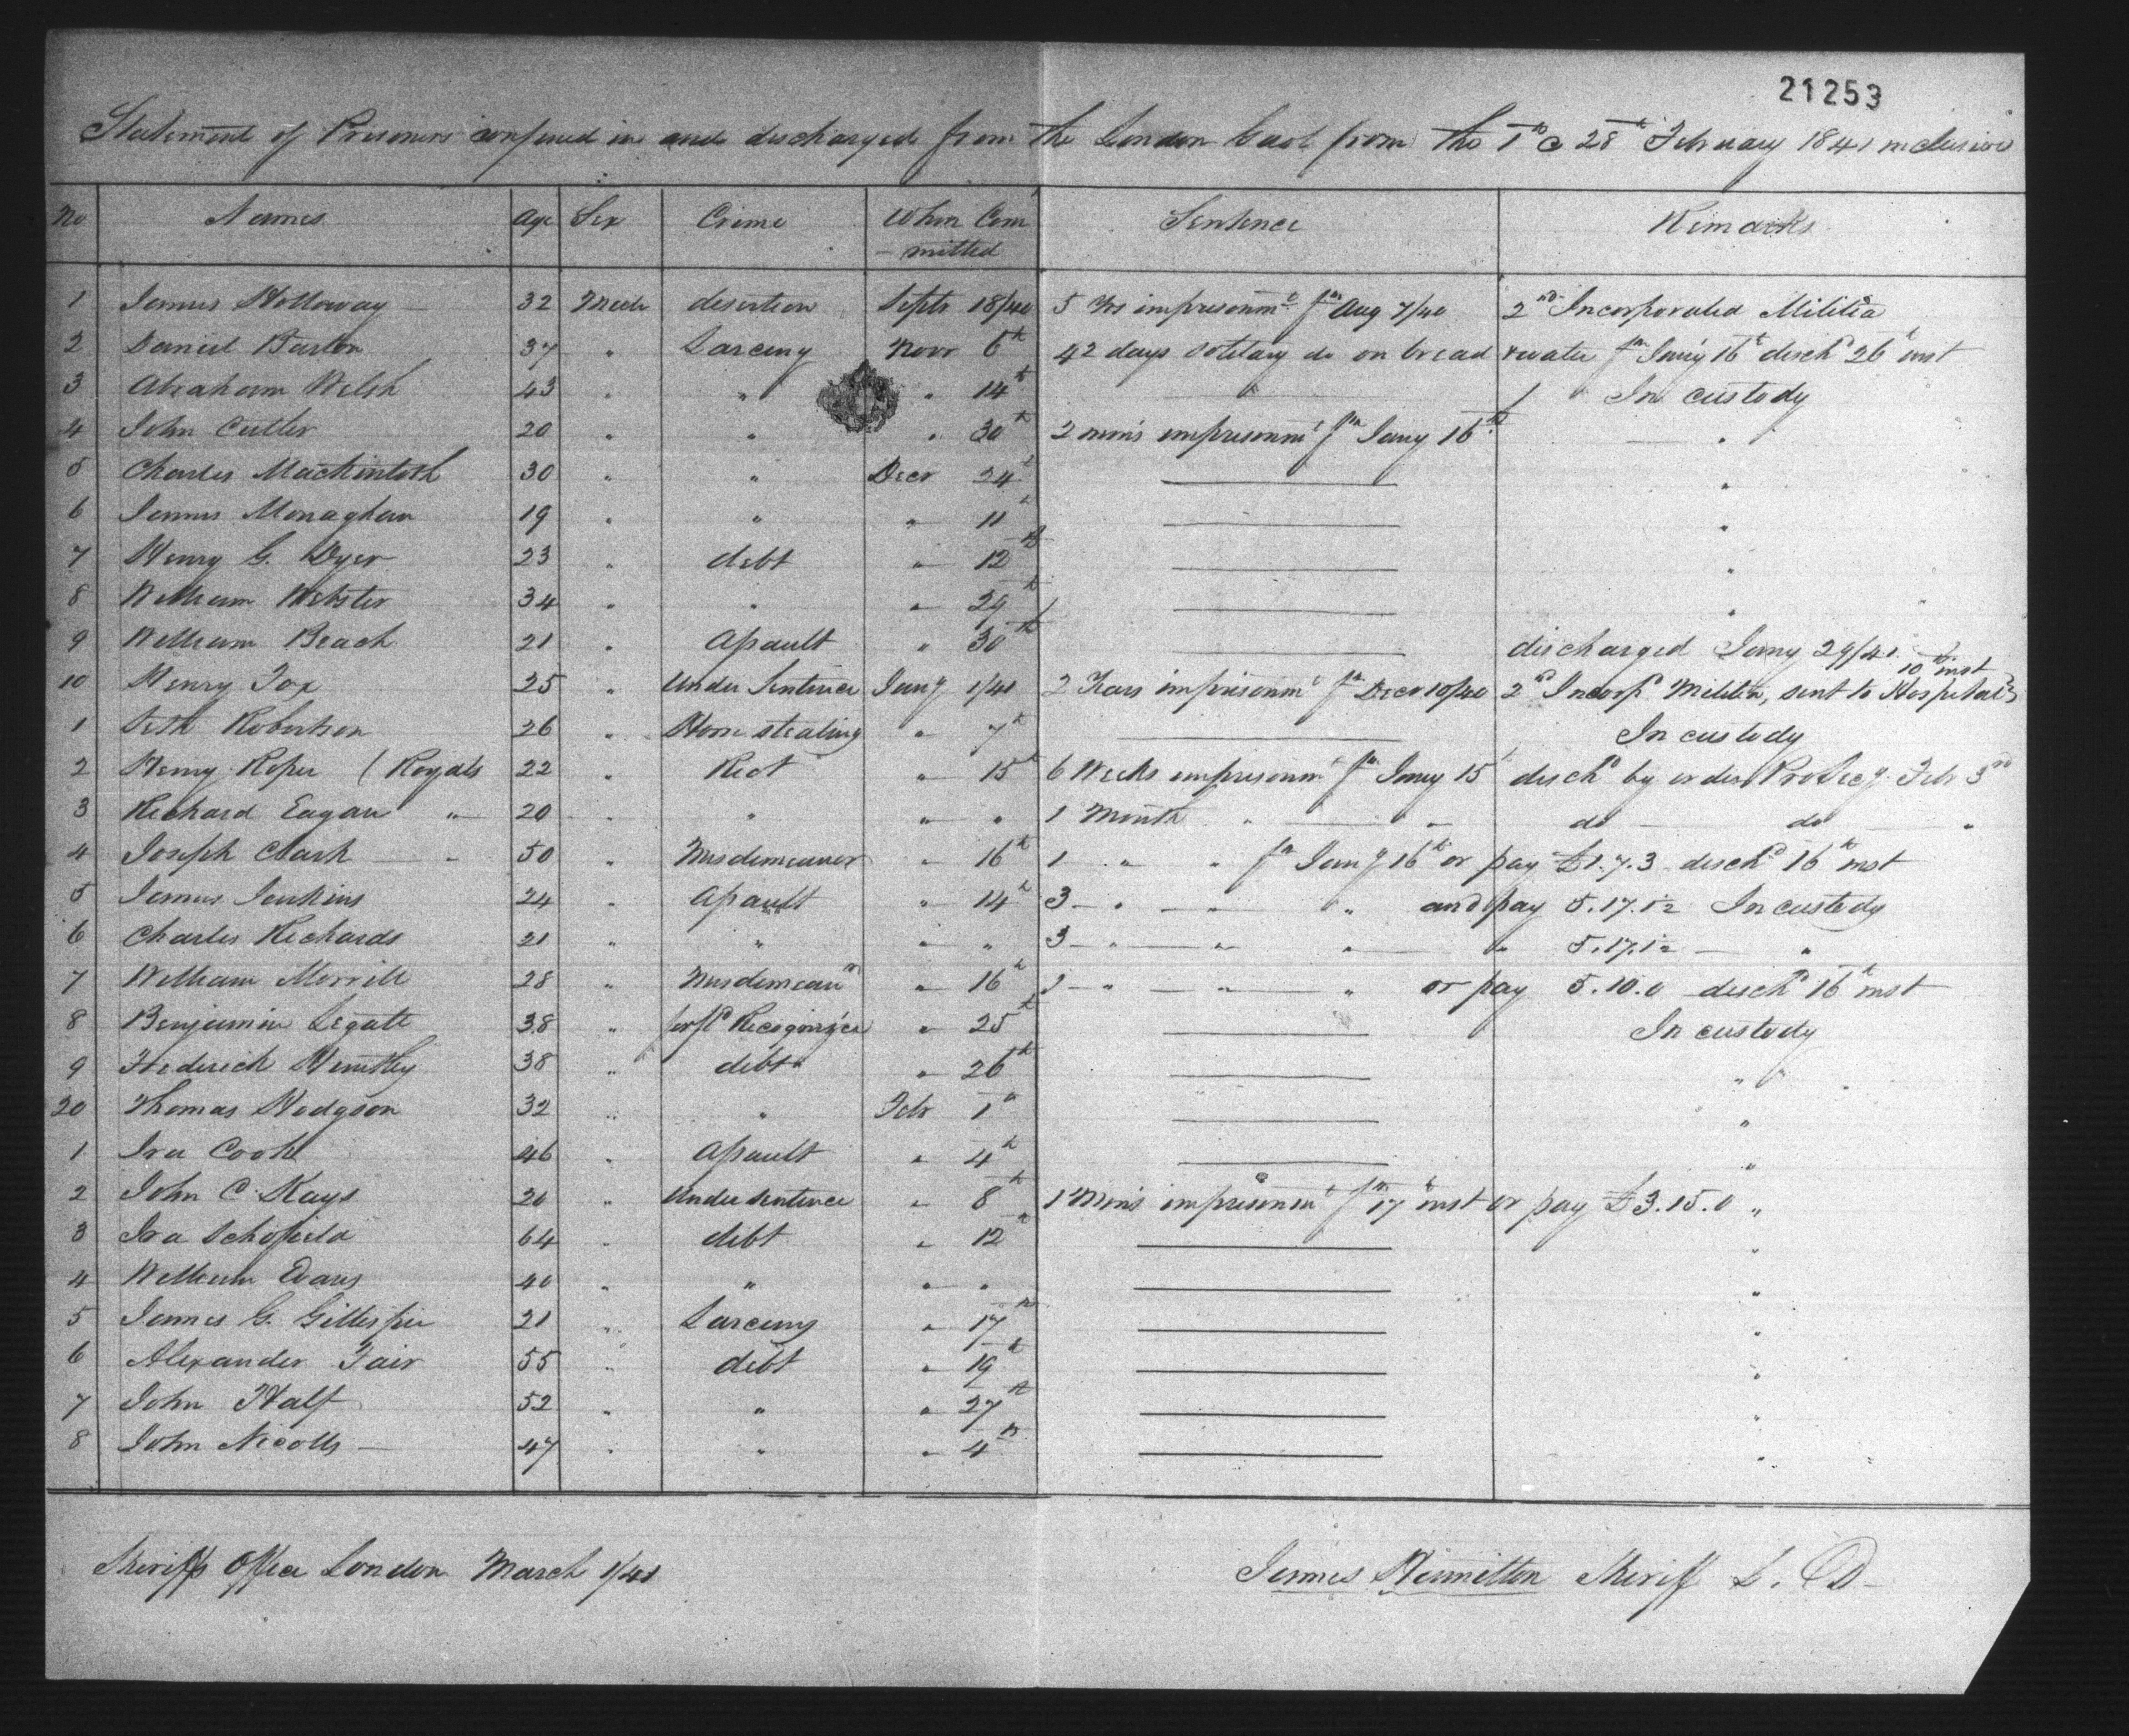 21253
Statement of Prisoners confined in and discharged from the London Gaol from the 1st @ 28th February 1841 inclusive
No Names Age Sex Crime When Com Sentence Remarks
-mitted
1 James Holloway 32 Male desertion Septr 18/40 5 Yrs imprisonmt fm Aug 7/40 2nd Incorporated Militia
2 Daniel Burton 37 " Larceny Novr 6th 42 days solitary do on bread & water fm Jany 16th dischd 26th inst
3 Abraham Welsh 43 " " " 14th " In custody
4 John Cutler 20 " " " 30th 2 mons imprisonmt fm Jany 16th "
5 Charles Mackintosh 30 " " Decr 24th "
6 James Monaghan 19 " " " 11th "
7 Henry G. Dyer 23 " debt " 12th "
8 William Webster 34 " " " 29th "
9 William Beach 21 " Assault " 30th discharged Jany 29/41
10th inst
10 Henry Fox 25 " Under Sentence Jany 1/41 2 Years imprisonmt fm Decr 10/40 2nd Incorpd Militia, sent to Hospital
1 Seth Robertson 26 " Horse stealing " 7th In custody
2 Henry Roper (Royals 22 " Riot " 15th 6 Weeks imprisonmt fm Jany 15th dischd by order Pro Secy Feb 3rd
3 Richard Eagan " 20 " " " " 1 Month " " do do "
4 Joseph Clark 50 " Misdemeanor " 16th 1 " " fm Jany 16th or pay £1.7.3 dischd 16th inst
5 James Jenkins 24 " Assault " 14th 3 " " " and pay 5.17.1½ In custody
6 Charles Richards 21 " " " " 3 " " " " 5.17.1½ "
7 William Merrill 28 " Misdemeanr " 16th 2 " " " or pay 5.10.0 dischd 16th inst
8 Benjamin Legate 38 " forfd Recognizce " 25th In custody
9 Frederick 38 " debt " 26th "
20 Thomas Hodgson 32 " " Feb 1st "
1 Ira Cook 46 " Assault " 4th "
2 John C. Kays 20 " Under sentence " 8th 1 Mons imprisonmt fm 17th inst or pay £3.15.0 "
3 Ira Schofield 64 " debt " 12th "
4 William Evans 40 " " " " "
5 James G. Gillespie 21 " Larceny " 17th "
6 Alexander Fair 55 " debt " 19th "
7 John Half 52 " " " 27th "
8 John Nicolls 47 " " " 4th "
Sheriffs Office London March 1/41 James Hamilton Sheriff L. D